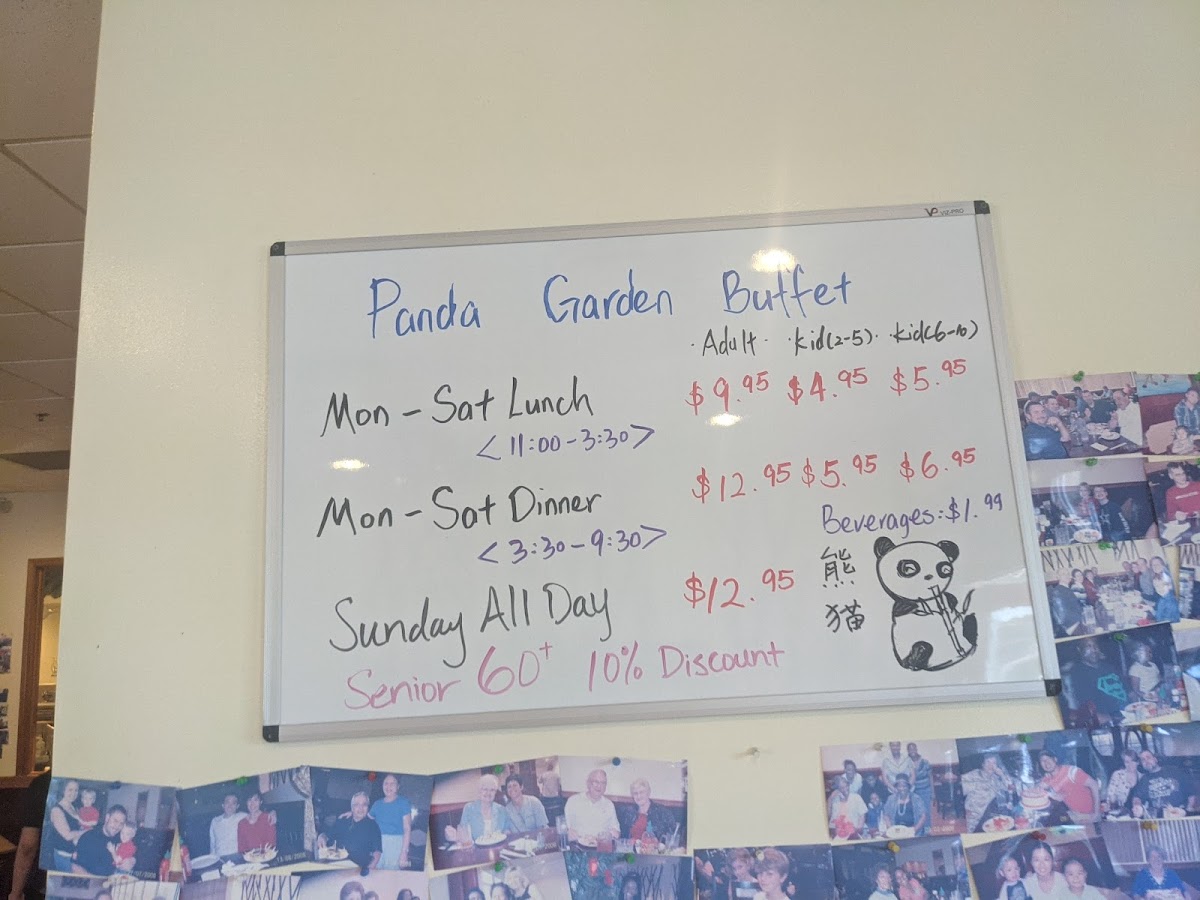 VIZ-PRO
Panda Garden Buffet
· Adult · · kid(2-5) · · kid(6-10)
Mon - Sat Lunch $9.95 $4.95 $5.95
<11:00-3:30>
Mon - Sat Dinner $12.95 $5.95 $6.95
<3:30-9:30>
Beverages: $1.99
Sunday All Day $12.95
熊
猫
Senior 60+ 10% Discount